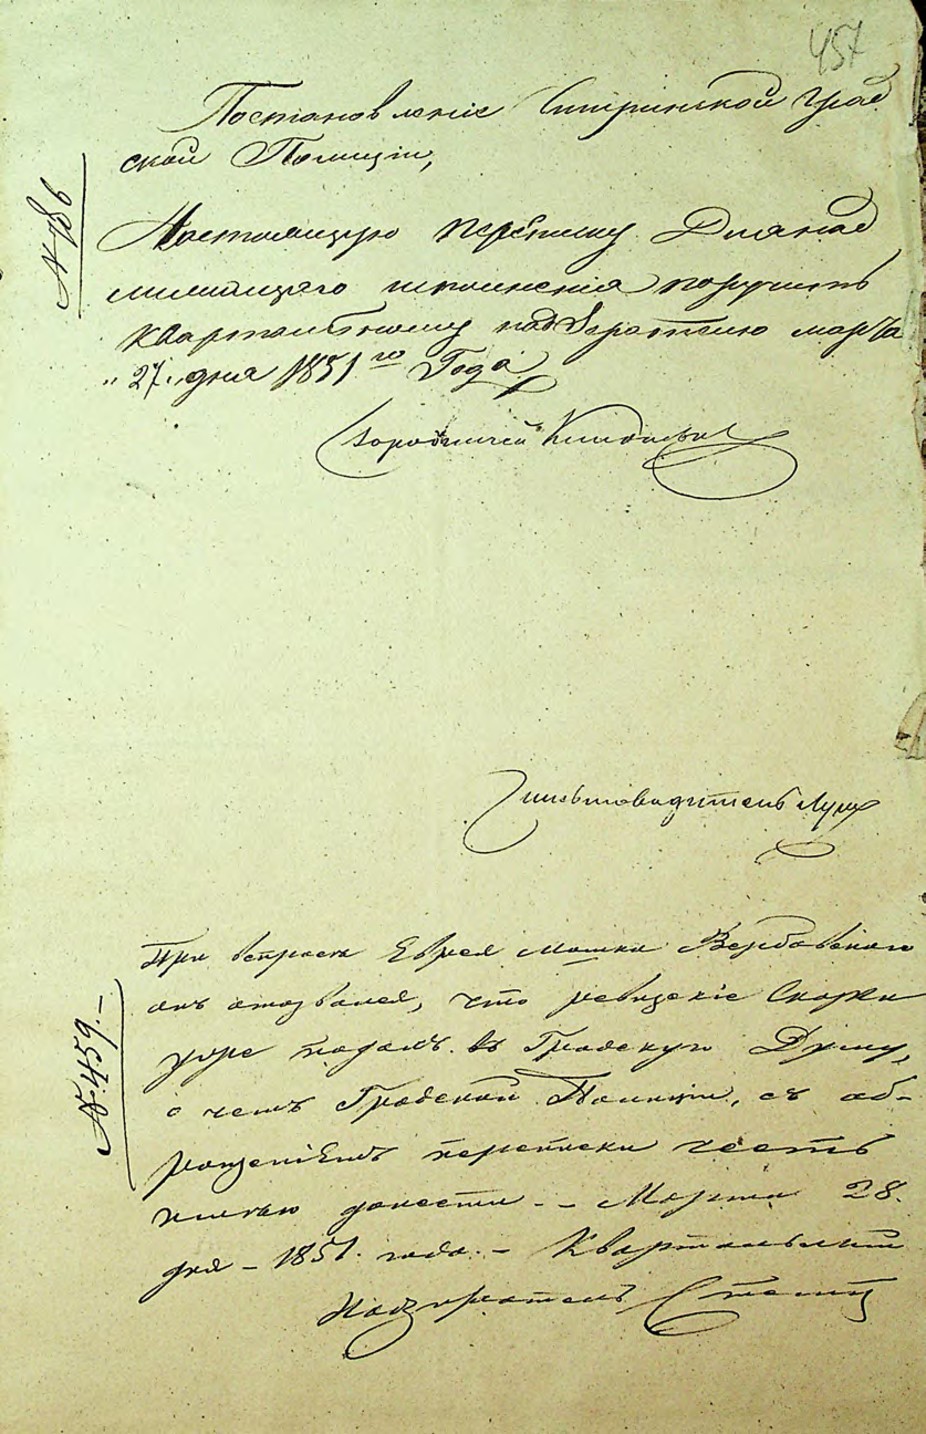 457
Постановленіе Градской Полиціи,
№ 786
Настоящую переписку Для над
лежащего исполненія поручить
Квартальному надзирателю марта
„27„ дня 1851го Года
Городничій
Письмоводитель
№ 459.—
При вспросѣ Еврея Мошки Вербовскаго
онъ отозвался, что ревизскіе Скаски
уже подалъ въ Градскую Думу,
о чемъ Градской Полиціи, съ об-
ращеніемъ переписки честь
имѣю донести. – Марта 28.
дня – 1851. года. – Квартальный
Надзиратель